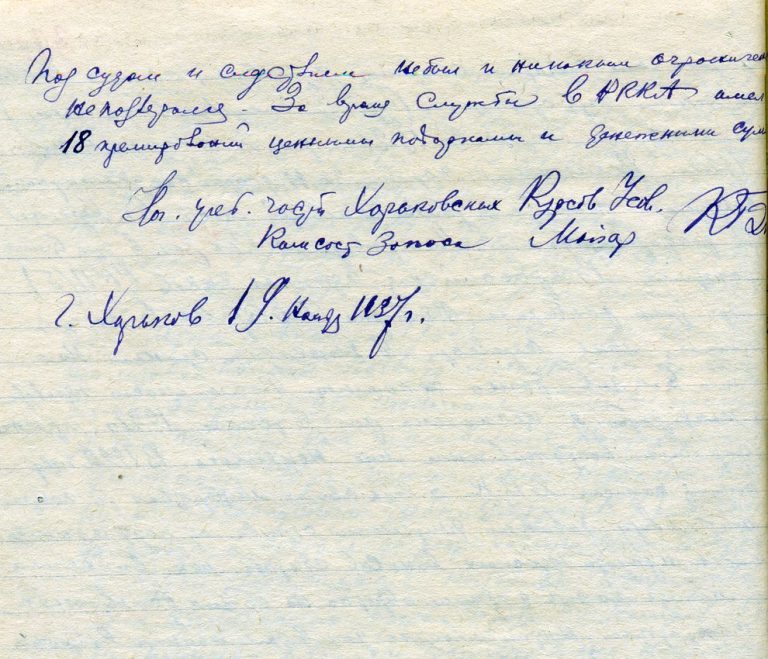 Под судом и следствием небыл и никаким ограничен
неподвергался. За время службы в РККА имел
18 премирований ценными подарками и денежними сум
Нач. учеб. части Харьковских Курсов Усов.
Комсост Запаса Майор
г. Харьков 19. Ноябр 1937 г.